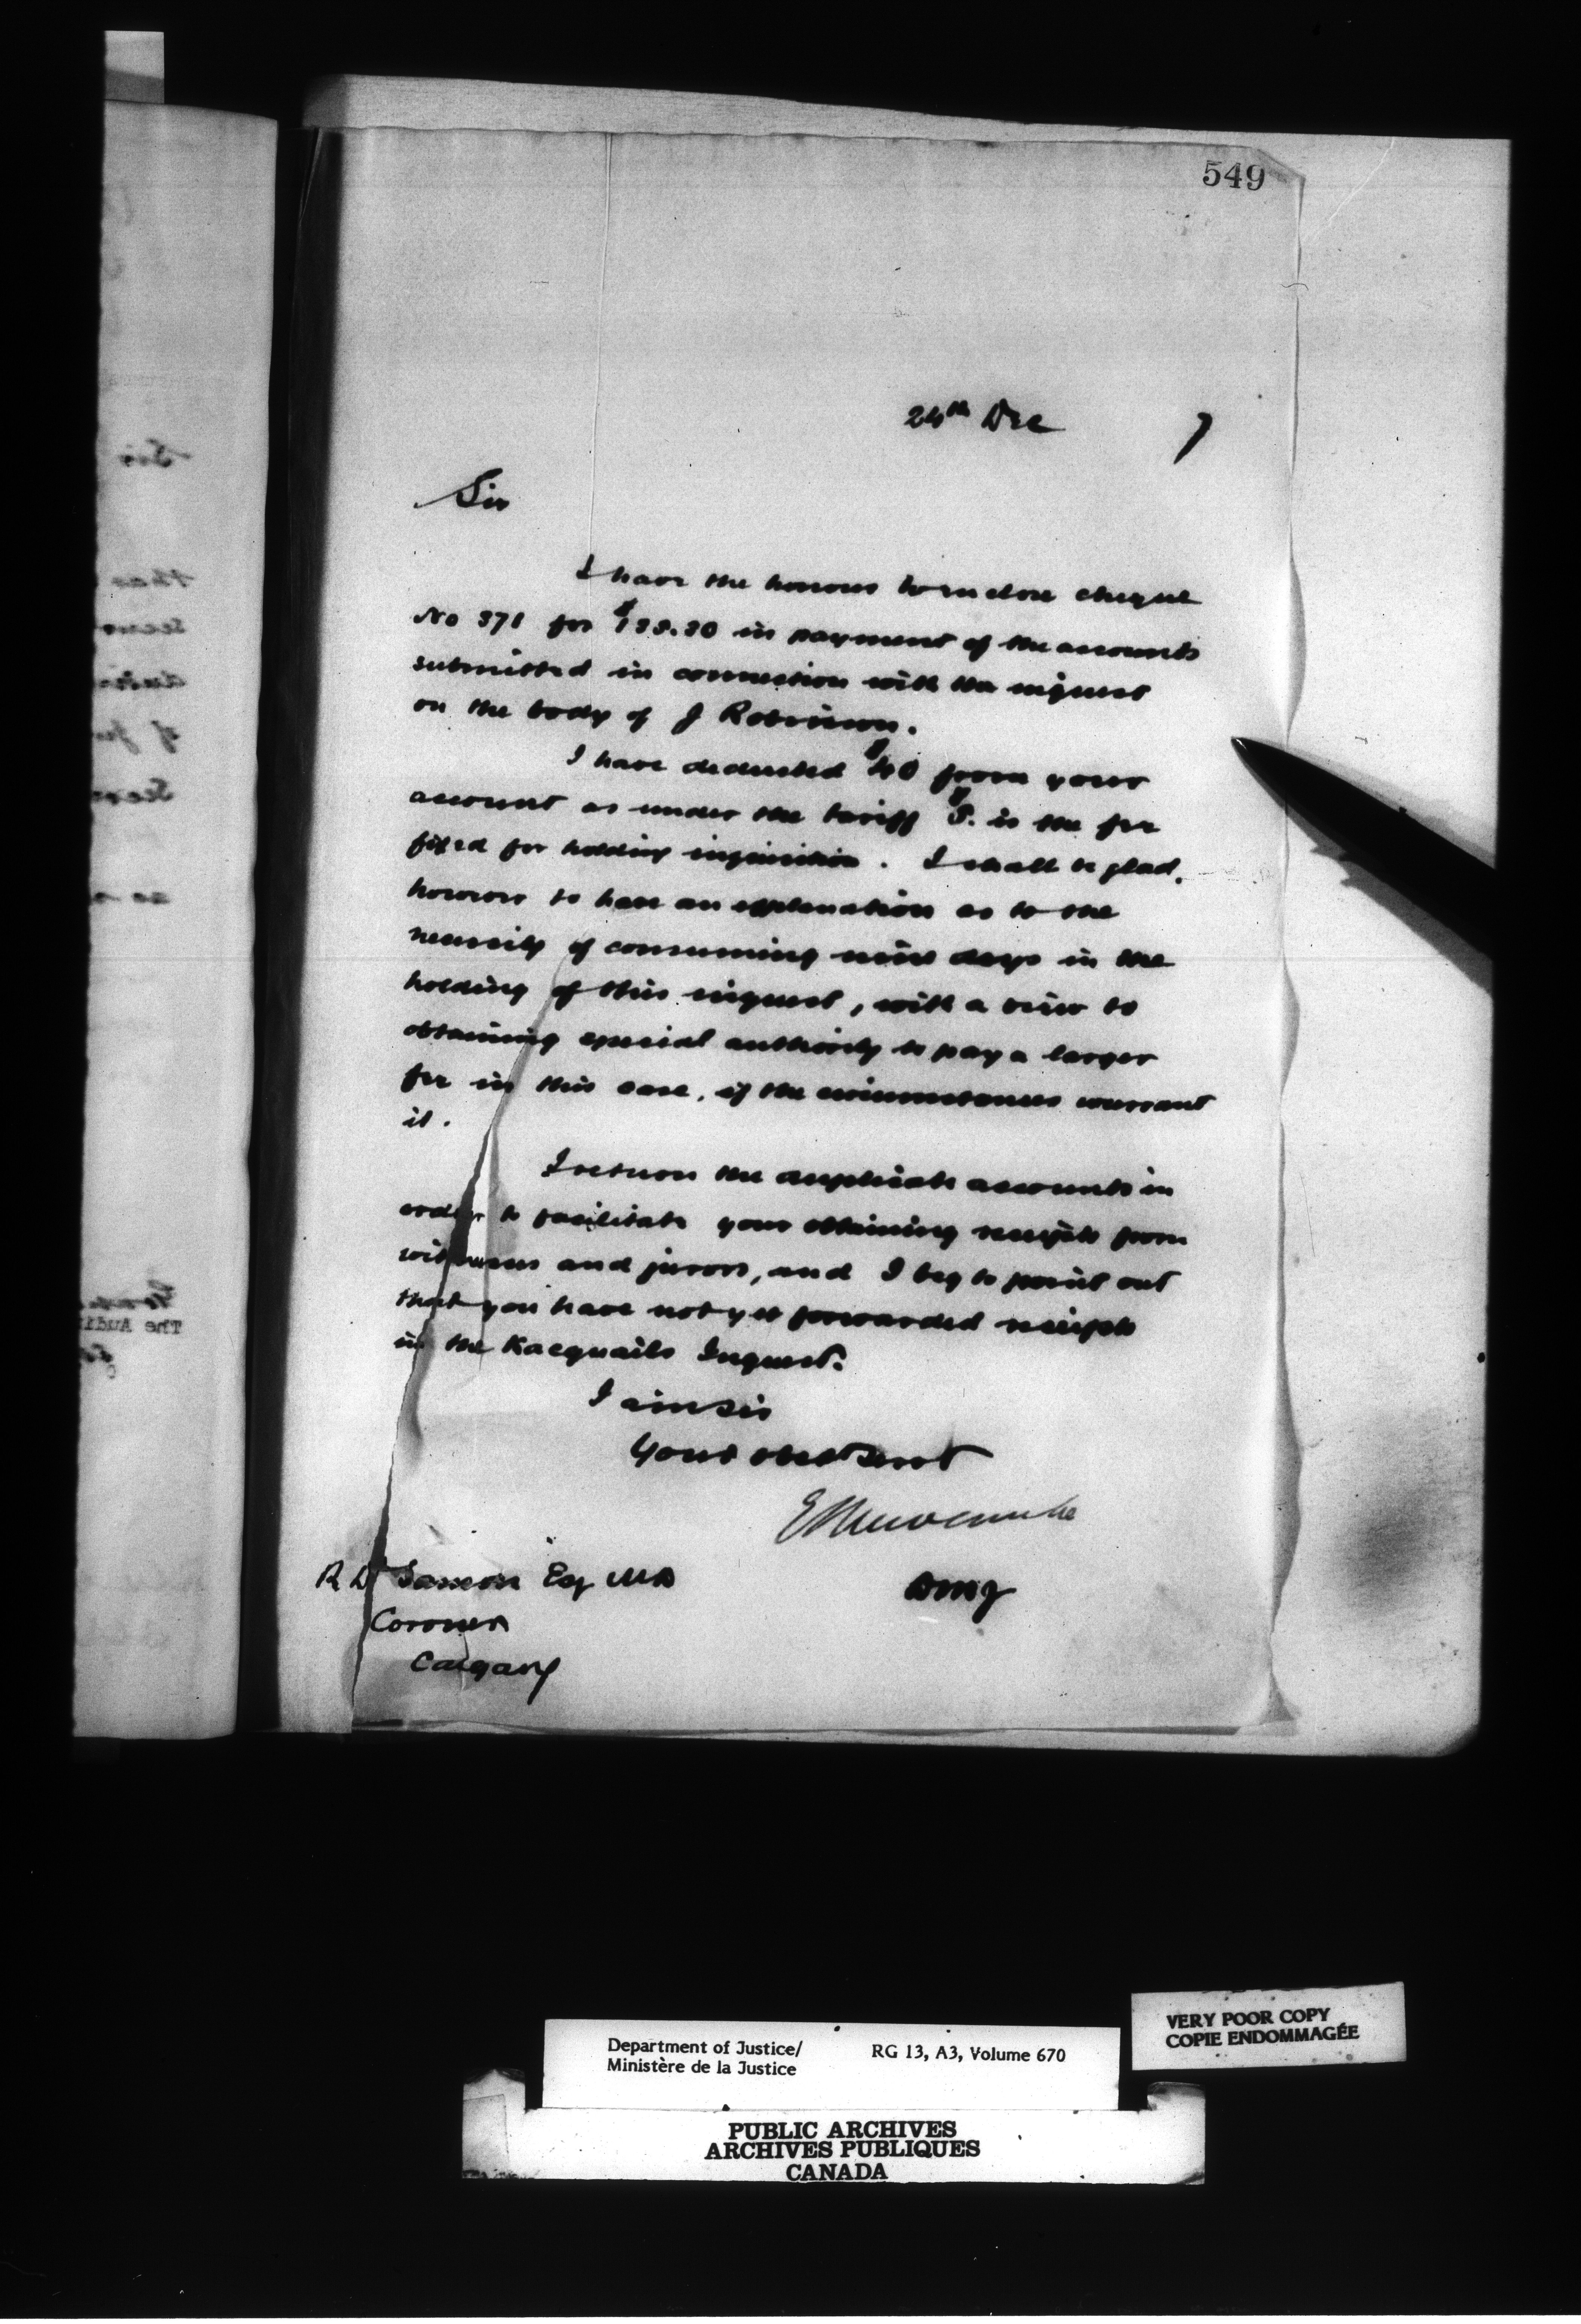 549
24th Dec 7
Sir
I have the honour to enclose cheque
No 371 for $133.30 in payment of the accounts
submitted in connection with the inquest
on the body of J Robinson.
I have deducted $40 from your
account as under the tariff $5. is the fee
fixed for holding inquisition. I shall be glad,
however to have an explanation as to the
necessity of consuming nine days in the
holding of this inquest, with a view to
obtaining special authority to pay a larger
fee in this case, if the circumstances warrant
it.
I return the duplicate accounts in
order to facilitate your obtaining receipts from
witnesses and jurors, and I beg to point out
that you have not yet forwarded receipts
in the Inquest.
I am Sir
Your obedt Servt
E L Newcombe
DMJ
R D Sanson Esq MD
Coroner
Calgary
Sir
The Audi
VERY POOR COPY
COPIE ENDOMMAGÉE
Department of Justice/ RG 13, A3, Volume 670
Ministère de la Justice
PUBLIC ARCHIVES
ARCHIVES PUBLIQUES
CANADA